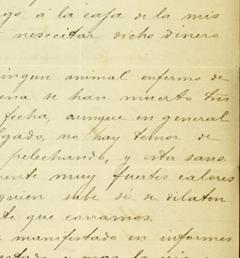 go á la caja de la mis
necocitar dicho dinero
ningun animal enfermo de
ena se han muerto tres
fecha, aunque en general
lgado, no hay temor de
pelechando, y esta sano
ente muy fuertes calores
quien sabe si se dilaten
te que corramos.
manifestado en informes